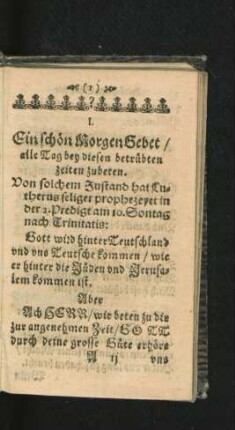 (1)
I.
Ein schön Morgen Gebet /
alle Tag bey diesen betrübten
zeiten zubeten.
Von solchem Zustand hat Lu-
therus seliger prophezeyet in
der 2. Predigt am 10. Sontag
nach Trinitatis:
Gott wird hinter Teutschland
vnd vns Teutsche kommen / wie
er hinter die Jüden vnd Jerusa-
lem kommen ist.
Aber
Ach HERR / wir beten zu dir
zur angenehmen Zeit / GOTT
durch deine grosse Güte erhöre
A ij vns